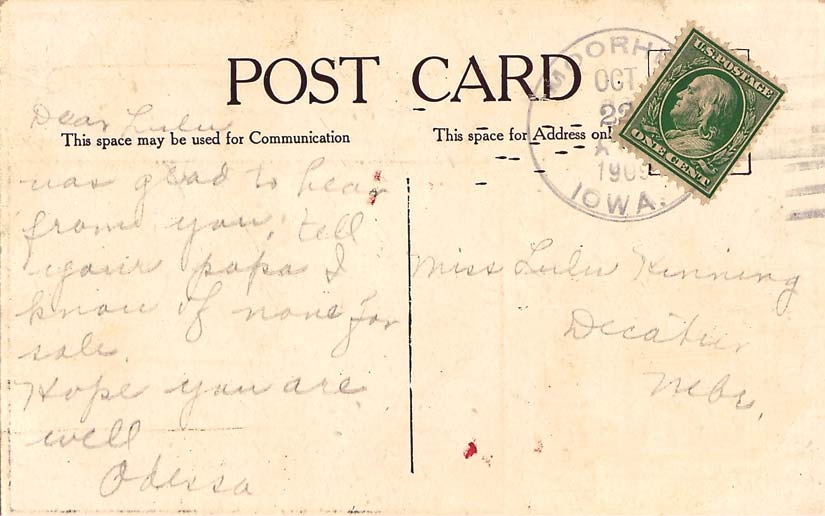 POST CARD
Dear Lulu
This space may be used for Communication
was glad to hear
from you, tell
your papa I
know of none for
sale.
Hope you are
well
Odessa
This space for Address onl
MOORH
OCT
22
1909
IOWA.
U.S. POSTAGE
ONE CENT
Miss Lulu Kinning
Decatur
Nebr.